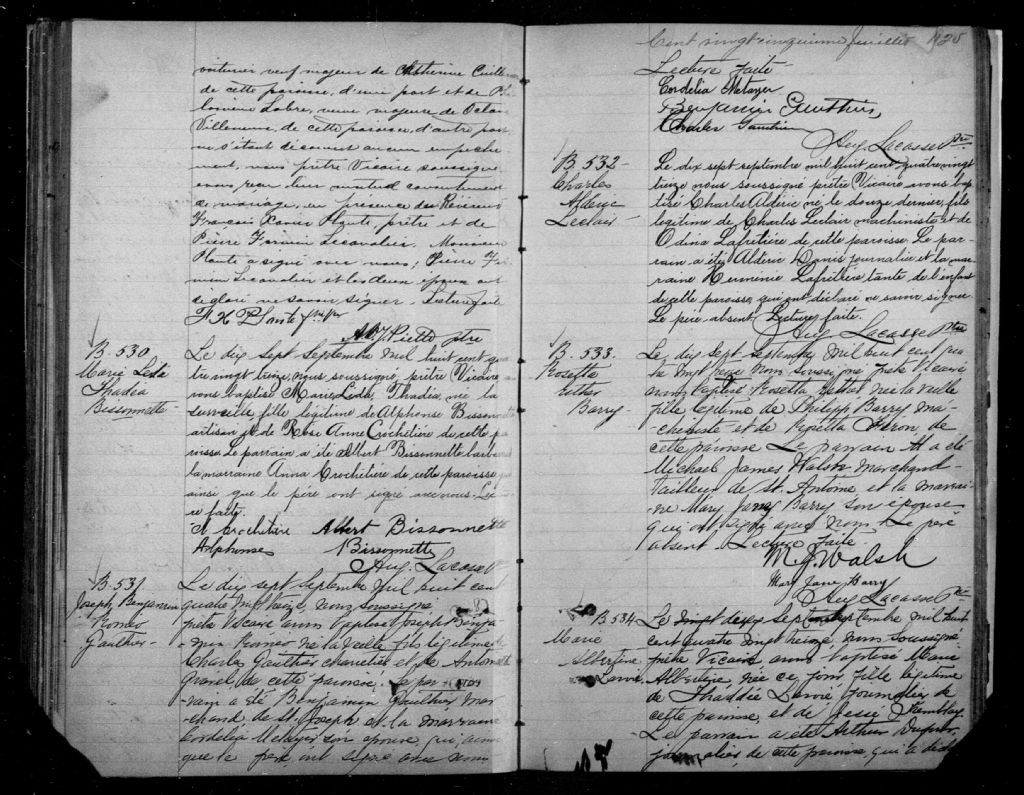 voiturier veuf majeur de Catherine
de cette paroisse, d'une part et de
Labre, veuve majeure de
Villeneuve, de cette paroisse, d'autre part
ne s'étant découvert aucun empêche
ment, nous prêtre Vicaire soussigné
avons reçu leur mutuel consentement
de mariage, en présence du Révérend
François Xavier Plante, prêtre et de
Pierre Firmin Lecavalier. Monsieur
Plante a signé avec nous; Pierre Fir
min Lecavalier et les deux époux ont
déclaré ne savoir signer. Lecture faite
F X Plante
ptre
B. 530
Marie Leda
Thadea
Bissonnette
Le dix sept Septembre mil huit cent qua
tre vingt treize, nous soussigné, prêtre Vicaire
vons baptisé Marie Leda, Thadea, née la
surveille fille légitime de Alphonse Bissonn
artisan et de Rose Anne Crochetière de cette pa
roisse. Le parrain a été Albert Bissonnette
la marraine Anna Crochetière de cette paroisse
ainsi que le père ont signé avec nous. Lec
re faite.
A Crochetière Albert Bissonnette
Alphonse Bissonnette
Aug. Lacasse
B. 531
Joseph Benjamin
Roméo
Gauthier
Le dix sept Septembre Mil huit cent
quatre vingt treize, nous soussigné
prêtre Vicaire avons baptisé Joseph Benja
min Roméo né la veille fils légitime de
Charles Gauthier charretier et de
de cette paroisse. Le par
rain a été Benjamin Gauthier mar
chand, de St Joseph et la marraine
Cordelia Metayer son épouse, qui, ainsi
que le père ont signé avec nous
Cent vingt cinquième feuillet 125
Lecture faite
Cordelia Metayer
Benjamin Gauthier,
Charles Gauthier
Aug. Lacasse Ptre
B. 532
Charles
Alderic
Leclair
Le dix sept septembre mil huit cent quatre vingt
treize nous soussigné prêtre Vicaire avons bap
tisé Charles Alderic né le douze dernier, fils
légitime de Charles Leclair machiniste et de
Odina Lafretière de cette paroisse. Le par
rain a été Alderic Danis journalier et la mar
raine Herminie Lafretière tante de l'enfant
de cette paroisse, qui ont déclaré ne savoir signer.
Le père absent. Lecture faite.
Aug. Lacasse Ptre
B. 533.
Rosetta
Esther
Barry
Le dix sept septembre mil huit cent qua
tre vingt treize nous soussigné prêtre Vicaire
avons baptisé Rosetta Esther née la veille
fille légitime de Philipp Barry ma
chiniste et de Heron de
cette paroisse Le parrain a été
Michael James Walsh Marchand
Tailleur de St. Antoine et la marrai
ne Mary Jane Barry son épouse
qui ont signé avec nous. Le père
absent. Lecture faite.
M. J. Walsh
Mary Jane Barry
Aug. Lacasse Ptre
B. 534
Marie
Albertine
Larivé
Le vingt deux Septembre mil huit
cent quatre vingt treize, nous soussigné
prêtre Vicaire, avons baptisé Marie
Albertine, née ce jour fille légitime
de Thaddée Larivé journalier de
cette paroisse, et de Jessé Tremblay
Le parrain a été Arthur
journalier, de cette paroisse, qui a décla